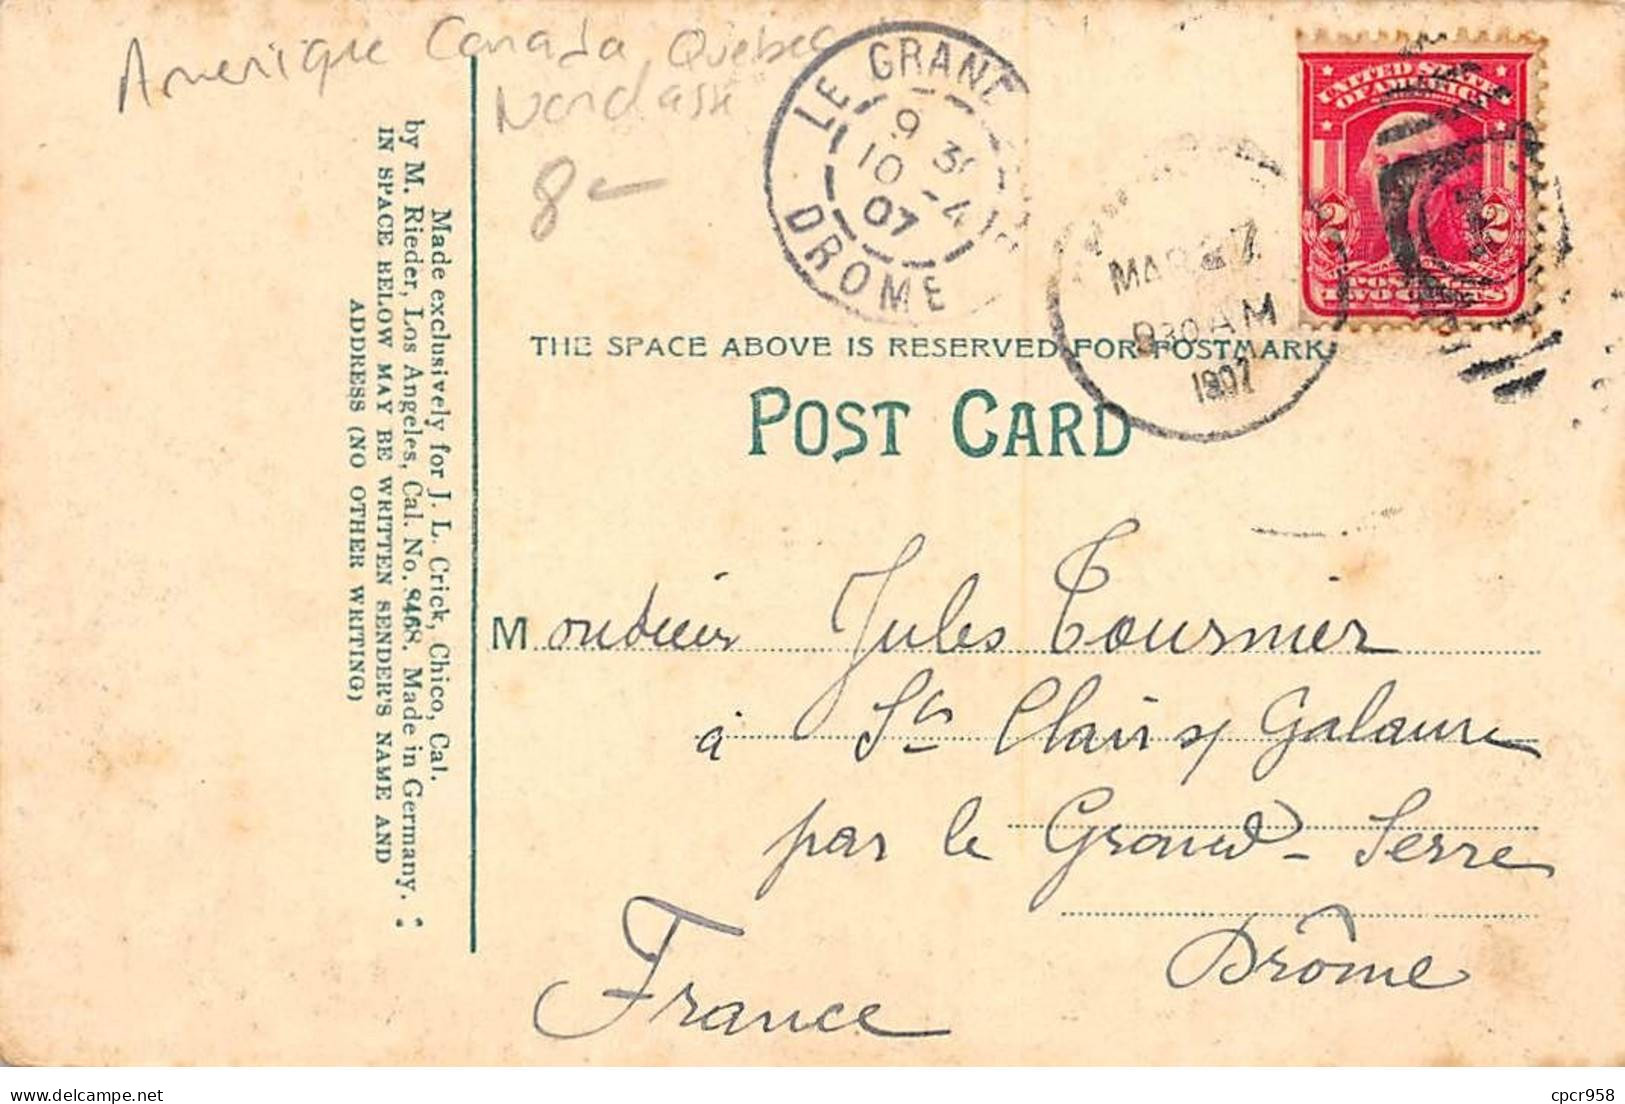 Amerique Canada Quebec
8-
LE GRAND
DROME
9 3
10 -4
07
MAR 27
930 AM
1907
UNITED STATES
OF AMERICA
2 2
POSTAGE
TWO CENTS
THE SPACE ABOVE IS RESERVED FOR POSTMARK
POST CARD
Made exclusively for J. L. Crick, Chico, Cal.
by M. Rieder, Los Angeles, Cal. No. 8468. Made in Germany.
IN SPACE BELOW MAY BE WRITTEN SENDER'S NAME AND
ADDRESS (NO OTHER WRITING)
Monsieur Jules Tournier
à St Clair s/ Galaure
par le Grand-Serre
Drôme
France
cpcr958